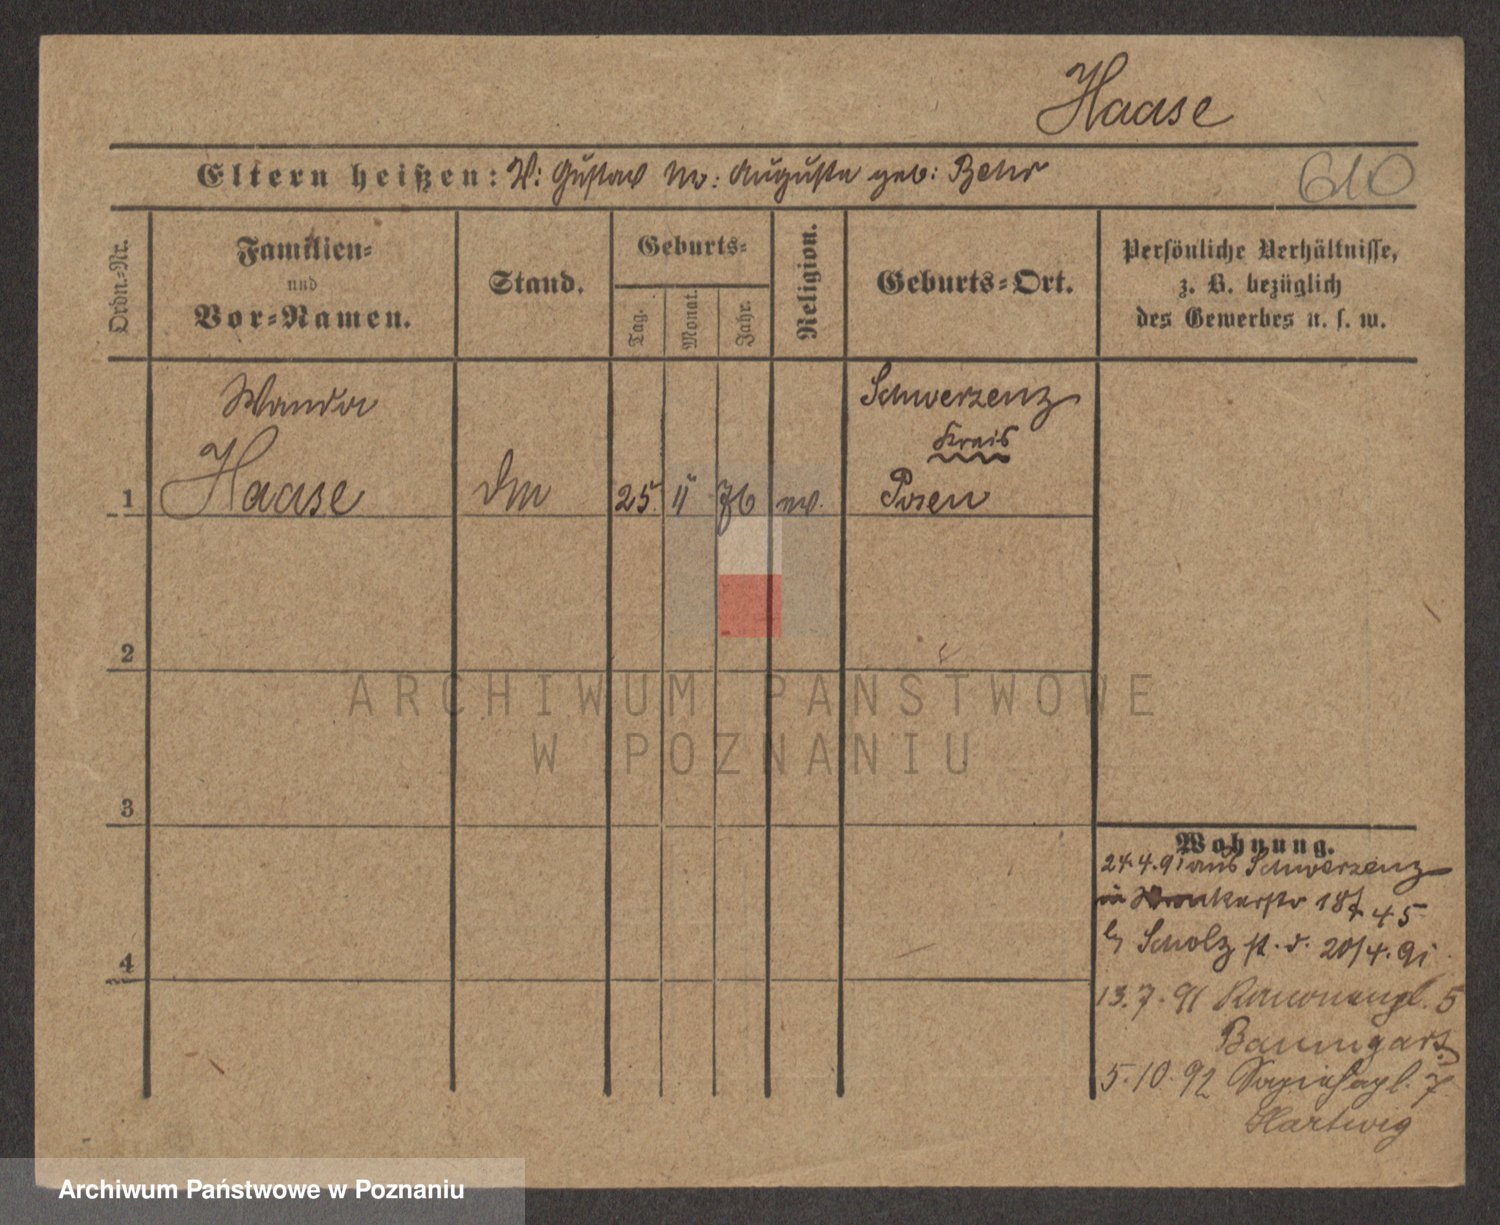 Haase
Eltern heißen: V: Gustav M: Auguste geb: Behr
610
Ordn.-Nr.
Familien-
und
Vor-Namen.
Stand.
Geburts-
Tag.
Monat.
Jahr.
Religion.
Geburts-Ort.
Persönliche Verhältnisse,
z. B. bezüglich
des Gewerbes u. s. w.
Wanda
Haase
1
25. 11 76 ev.
Schwerzenz
Kreis
Posen
2
3
4
Wohnung.
24.4.91 aus Schwerzenz
Wronkerstr 18
45
Scholz st. d. 20/4.91
13.7.91 Kanonenpl. 5
Baumgart
5.10.92 Sapiehapl. 7
Hartwig
ARCHIWUM PAŃSTWOWE
W POZNANIU
Archiwum Państwowe w Poznaniu